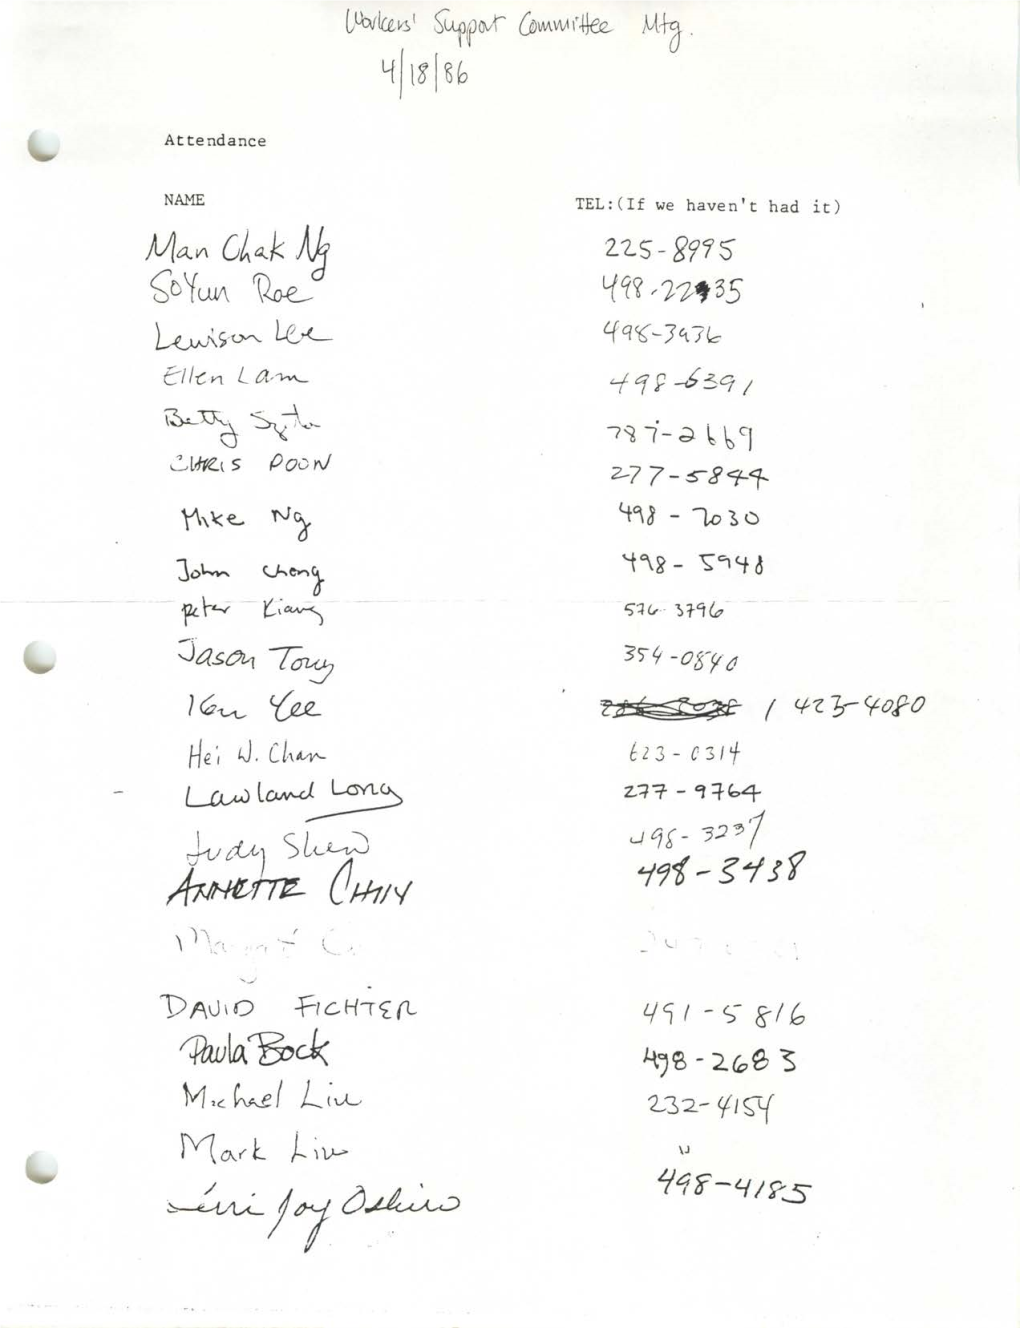 Workers' Support Committee Mtg.
4/18/86
Attendance
NAME TEL:(If we haven't had it)
Man Chak Ng 225-8995
SoYun Roe 498-2235
Lewison Lee 498-3936
Ellen Lam 498-6391
Betty 787-2669
CHRIS POON 277-5844
Mike Ng 498-7030
John Chong 498-5948
Peter Kiang 576-3796
Jason Tong 354-0840
Ken Yee / 423-4080
Hei W. Chan 623-0314
Lawland Long 277-9764
Judy Shen 498-3237
ANNETTE CHIN 498-3438
DAVID FICHTER 491-5816
Paula Bock 498-2683
Michael Liu 232-4154
Mark Liu "
Terri Joy Oshiro 498-4185